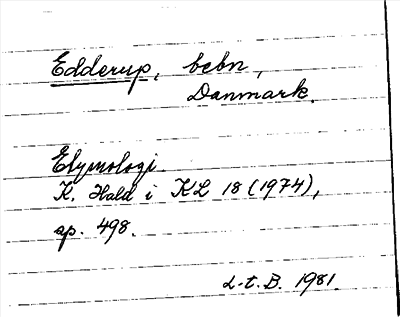 Edderup, bebn,
Danmark.
Etymologi
K. Hald i KL 18 (1974),
sp. 498.
L-t. B. 1981.